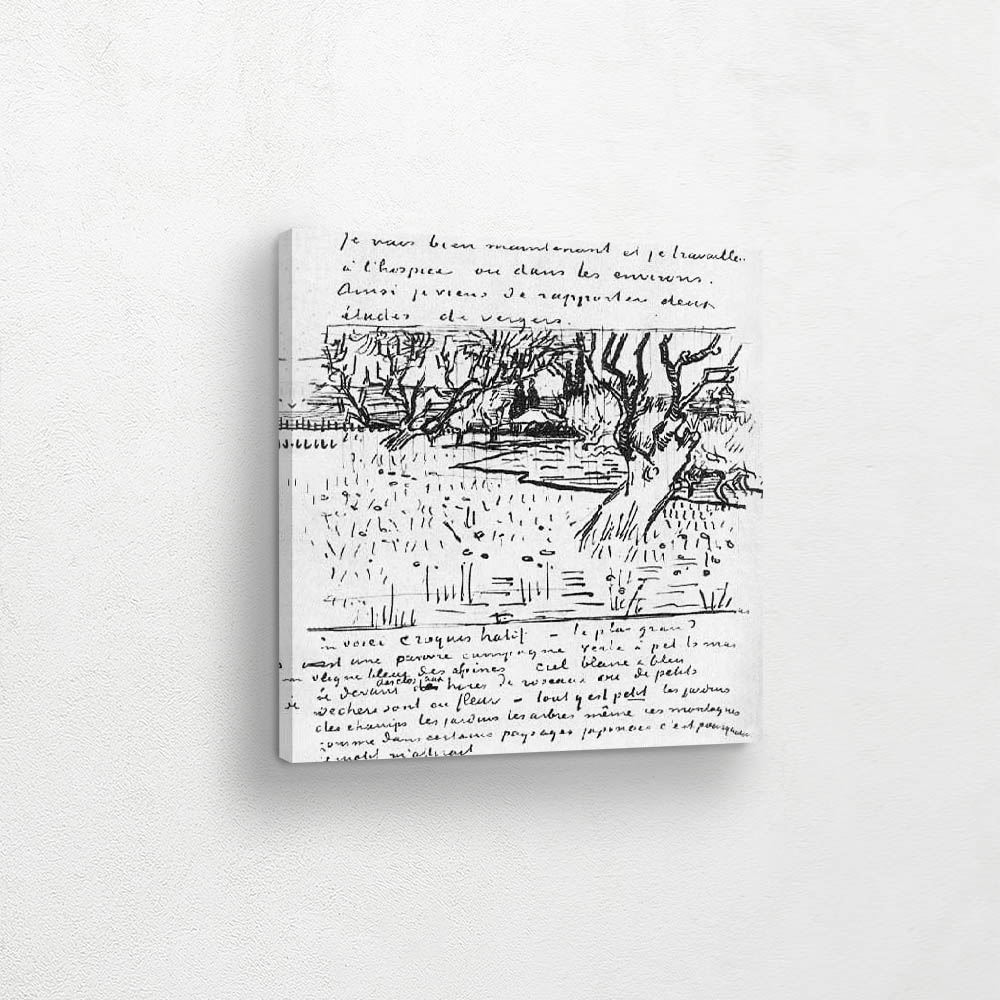 Je vais bien maintenant et je travaille
à l'hospice ou dans les environs.
Ainsi je viens de rapporter deux
études de vergers.
voici croquis hatif – le plus grand
est une pauvre campagne verte à petits mas
ligne bleue des alpines ciel blanc & bleu
de devant des clos aux haies de roseaux où de petits
pechers sont en fleur – tout y est petit les jardins
des champs les jardins les arbres même ces montagnes
comme dans certains paysages japonais c'est pourquoi
motif m'attirait